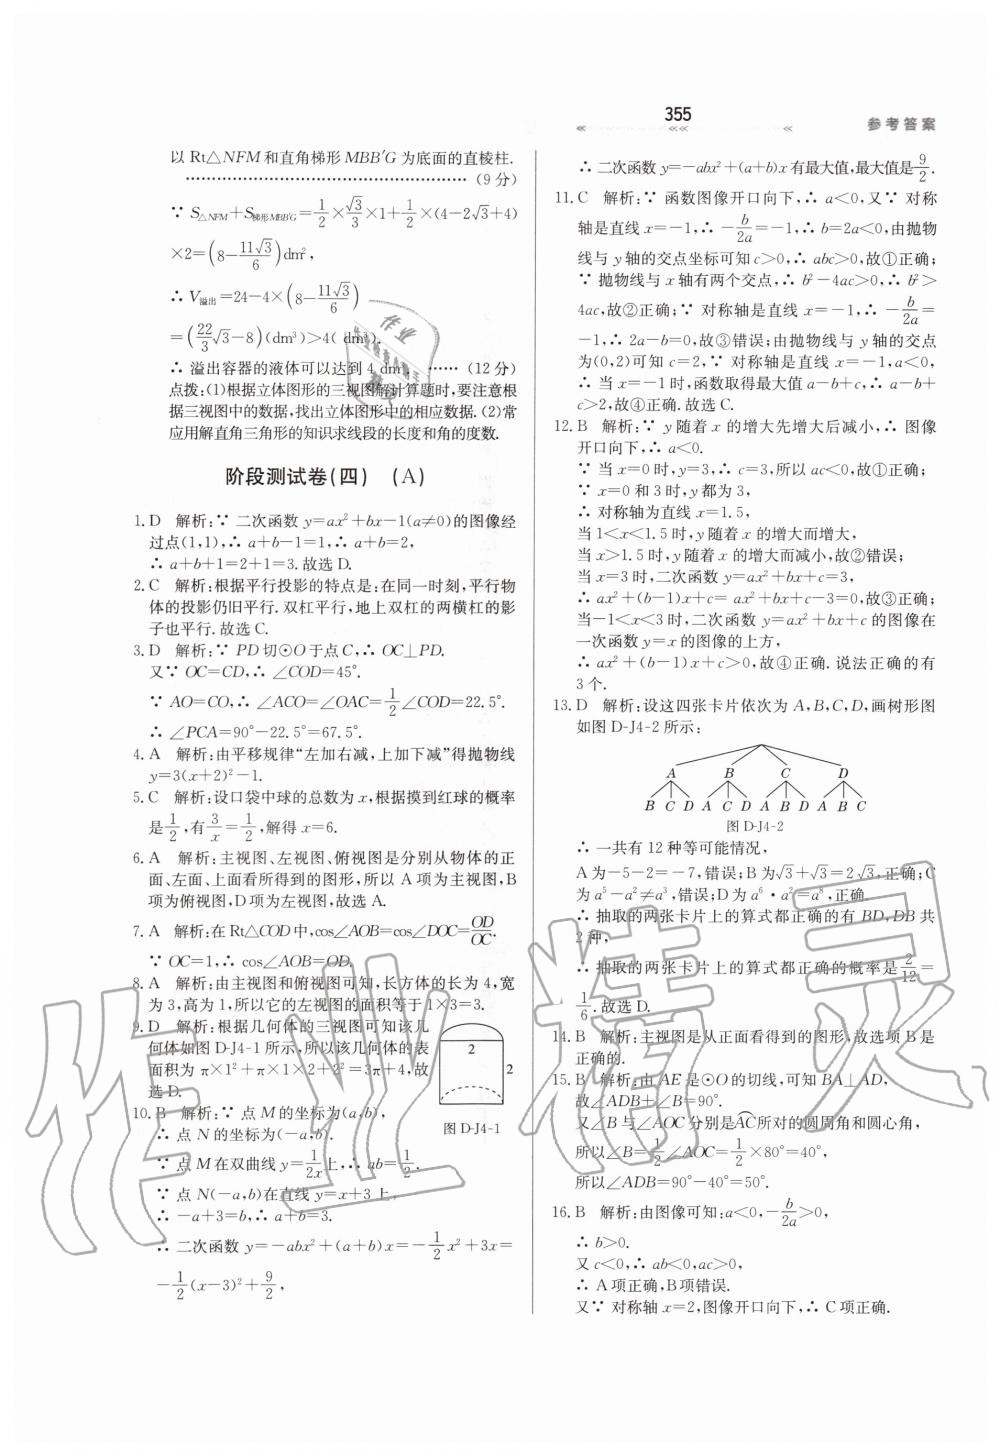 355
参考答案
以 Rt△NFM 和直角梯形 MBB′G 为底面的直棱柱.
……………………………………………… (9 分)
∵ S△NFM+S梯形MBB′G=1/2×√3/3×1+1/2×(4-2√3+4)
×2=(8-11√3/6)dm²,
∴ V溢出=24-4×(8-11√3/6)
=(22/3√3-8)(dm³)>4( dm³).
∴ 溢出容器的液体可以达到 4 dm³. …… (12 分)
点拨:(1)根据立体图形的三视图解计算题时,要注意根
据三视图中的数据,找出立体图形中的相应数据.(2)常
应用解直角三角形的知识求线段的长度和角的度数.
阶段测试卷(四) (A)
1. D 解析:∵ 二次函数 y=ax²+bx-1(a≠0)的图像经
过点(1,1),∴ a+b-1=1,∴ a+b=2,
∴ a+b+1=2+1=3.故选 D.
2. C 解析:根据平行投影的特点是:在同一时刻,平行物
体的投影仍旧平行.双杠平行,地上双杠的两横杠的影
子也平行.故选 C.
3. D 解析:∵ PD 切⊙O 于点 C,∴ OC⊥PD.
又∵ OC=CD,∴ ∠COD=45°.
∵ AO=CO,∴ ∠ACO=∠OAC=1/2∠COD=22.5°.
∴ ∠PCA=90°-22.5°=67.5°.
4. A 解析:由平移规律“左加右减,上加下减”得抛物线
y=3(x+2)²-1.
5. C 解析:设口袋中球的总数为 x,根据摸到红球的概率
是1/2,有3/x=1/2,解得 x=6.
6. A 解析:主视图、左视图、俯视图是分别从物体的正
面、左面、上面看所得到的图形,所以 A 项为主视图,B
项为俯视图,D 项为左视图,故选 A.
7. A 解析:在 Rt△COD 中,cos∠AOB=cos∠DOC=OD/OC.
∵ OC=1,∴ cos∠AOB=OD.
8. A 解析:由主视图和俯视图可知,长方体的长为 4,宽
为 3,高为 1,所以它的左视图的面积等于 1×3=3.
9. D 解析:根据几何体的三视图可知该几
何体如图 D-J4-1 所示,所以该几何体的表
面积为 π×1²+π×1×2+2²=3π+4,故
选 D.
2
2
图 D-J4-1
10. B 解析:∵ 点 M 的坐标为(a,b),
∴ 点 N 的坐标为(-a,b).
∵ 点 M 在双曲线 y=1/2x上,∴ ab=1/2.
∵ 点 N(-a,b)在直线 y=x+3 上,
∴ -a+3=b,∴ a+b=3.
∴ 二次函数 y=-abx²+(a+b)x=-1/2x²+3x=
-1/2(x-3)²+9/2,
∴ 二次函数 y=-abx²+(a+b)x 有最大值,最大值是9/2.
11. C 解析:∵ 函数图像开口向下,∴ a<0,又∵ 对称
轴是直线 x=-1,∴ -b/2a=-1,∴ b=2a<0,由抛物
线与 y 轴的交点坐标可知 c>0,∴ abc>0,故①正确;
∵ 抛物线与 x 轴有两个交点,∴ b²-4ac>0,∴ b²>
4ac,故②正确;∵ 对称轴是直线 x=-1,∴ -b/2a=
-1,∴ 2a-b=0,故③错误;由抛物线与 y 轴的交点
为(0,2)可知 c=2,∵ 对称轴是直线 x=-1,a<0,
∴ 当 x=-1 时,函数取得最大值 a-b+c,∴ a-b+
c>2,故④正确.故选 C.
12. B 解析:∵ y 随着 x 的增大先增大后减小,∴ 图像
开口向下,∴ a<0.
∵ 当 x=0 时,y=3,∴ c=3,所以 ac<0,故①正确;
∵ 当 x=0 和 3 时,y 都为 3,
∴ 对称轴为直线 x=1.5,
当 1<x<1.5 时,y 随着 x 的增大而增大,
当 x>1.5 时,y 随着 x 的增大而减小,故②错误;
当 x=3 时,二次函数 y=ax²+bx+c=3,
∴ ax²+(b-1)x+c= ax²+bx+c-3=0,故③正确;
当-1<x<3 时,二次函数 y=ax²+bx+c 的图像在
一次函数 y=x 的图像的上方,
∴ ax²+(b-1)x+c>0,故④正确.说法正确的有
3 个.
13. D 解析:设这四张卡片依次为 A,B,C,D,画树形图
如图 D-J4-2 所示:
A B C D
B C D A C D A B D A B C
图 D-J4-2
∴ 一共有 12 种等可能情况,
A 为-5-2=-7,错误;B 为√3+√3=2√3,正确;C
为 a⁵-a²≠a³,错误;D 为 a⁶·a²=a⁸,正确.
∴ 抽取的两张卡片上的算式都正确的有 BD,DB 共
2 种,
∴ 抽取的两张卡片上的算式都正确的概率是2/12=
1/6.故选 D.
14. B 解析:主视图是从正面看得到的图形,故选项 B 是
正确的.
15. B 解析:由 AE 是⊙O 的切线,可知 BA⊥AD,
故∠ADB+∠B=90°.
又∠B 与∠AOC 分别是AC所对的圆周角和圆心角,
所以∠B=1/2∠AOC=1/2×80°=40°,
所以∠ADB=90°-40°=50°.
16. B 解析:由图像可知:a<0,-b/2a>0,
∴ b>0.
又 c<0,∴ ab<0,ac>0,
∴ A 项正确,B 项错误.
又∵ 对称轴 x=2,图像开口向下,∴ C 项正确.
作业精灵